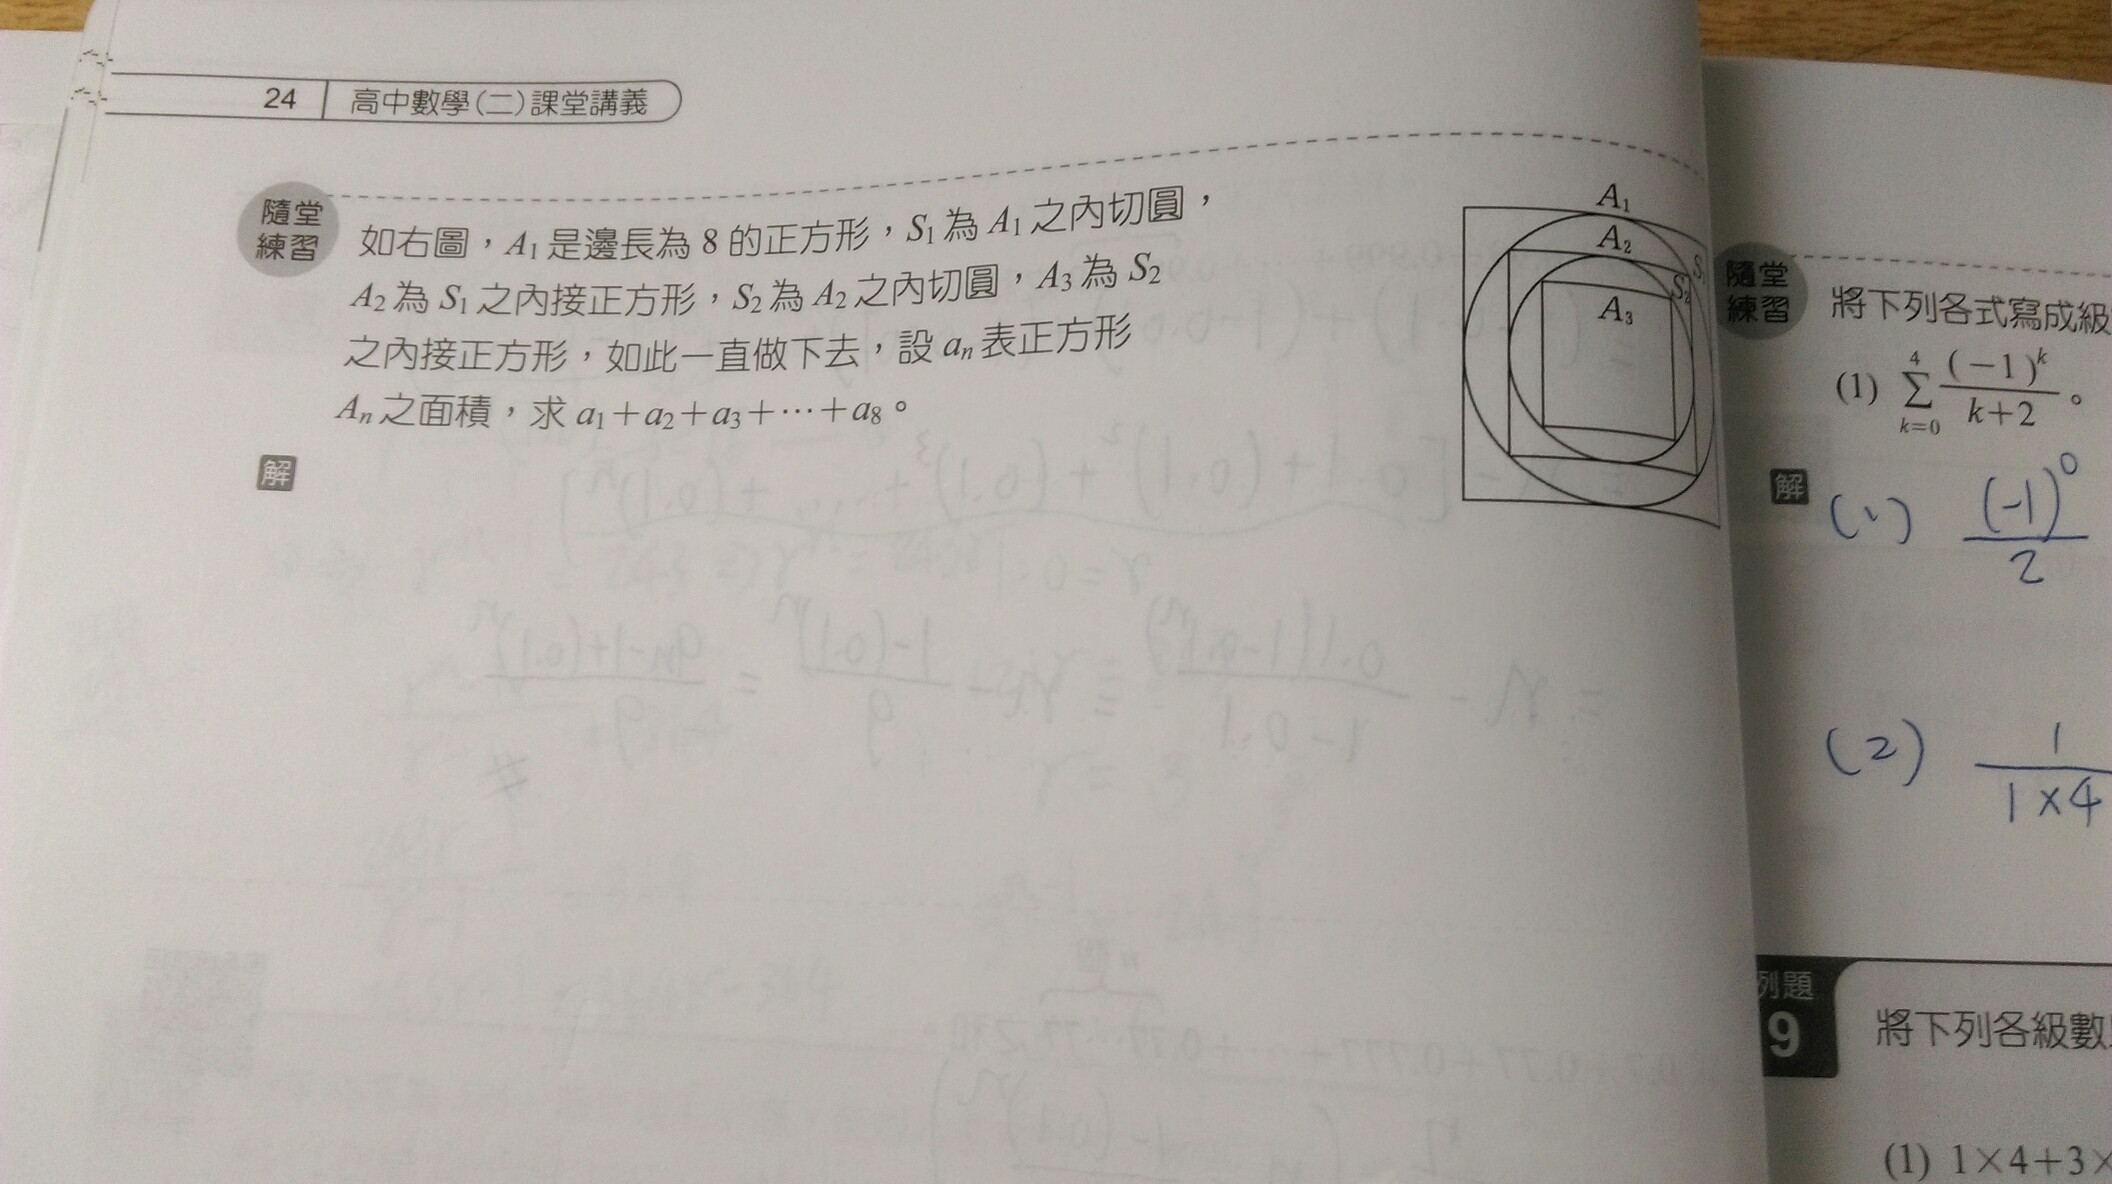 24 高中數學(二)課堂講義
隨堂
練習
如右圖，A₁是邊長為8的正方形，S₁為A₁之內切圓，
A₂為S₁之內接正方形，S₂為A₂之內切圓，A₃為S₂
之內接正方形，如此一直做下去，設aₙ表正方形
Aₙ之面積，求a₁+a₂+a₃+⋯+a₈。
解
A₁
A₂
S₂
A₃
隨堂
練習
將下列各式寫成級
(1) ∑_{k=0}^{4} (-1)^k/(k+2)。
解
(1) (-1)^0/2
(2) 1/(1×4
9
將下列各級數
(1) 1×4+3×